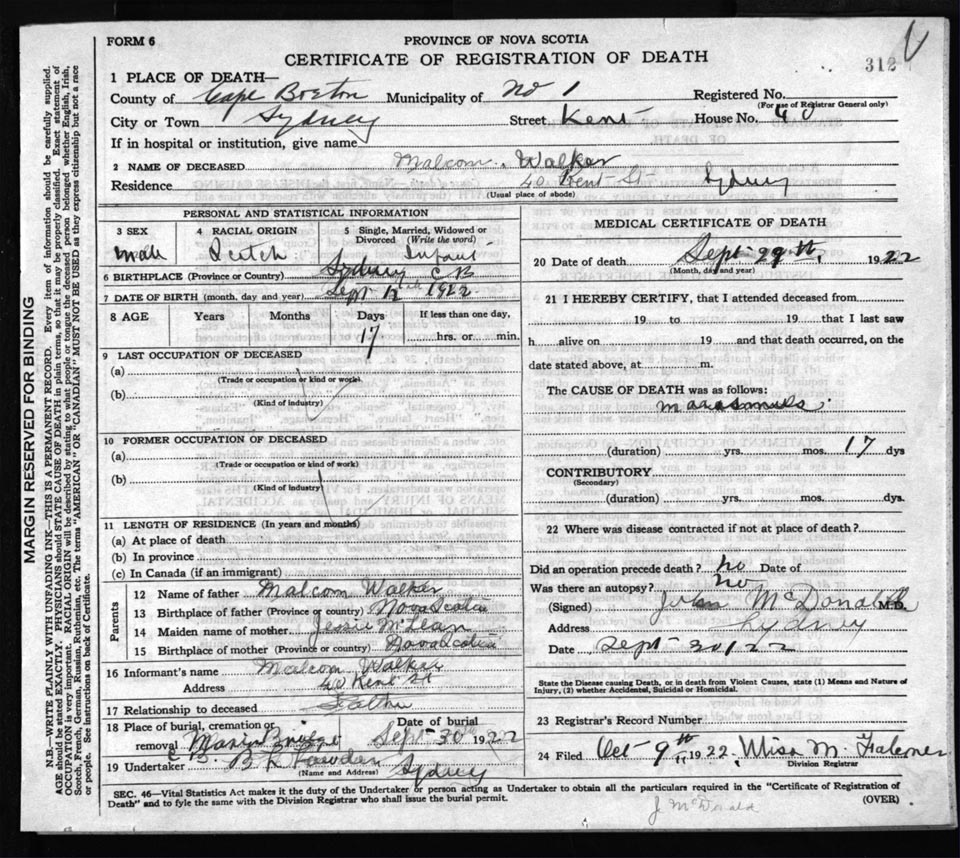 FORM 6
PROVINCE OF NOVA SCOTIA
CERTIFICATE OF REGISTRATION OF DEATH
312
1 PLACE OF DEATH—
County of Cape Breton Municipality of No 1 Registered No.
(For use of Registrar General only)
City or Town Sydney Street Kent House No. 40
If in hospital or institution, give name
2 NAME OF DECEASED Malcom Walker
Residence 40 Kent St Sydney
(Usual place of abode)
PERSONAL AND STATISTICAL INFORMATION
3 SEX Male
4 RACIAL ORIGIN Scotch
5 Single, Married, Widowed or Divorced (Write the word) Infant
6 BIRTHPLACE (Province or Country) Sydney C B
7 DATE OF BIRTH (month, day and year) Sept 12th 1922
8 AGE Years Months Days 17 If less than one day, hrs. or min.
9 LAST OCCUPATION OF DECEASED
(a)
(Trade or occupation or kind or work)
(b)
(Kind of industry)
10 FORMER OCCUPATION OF DECEASED
(a)
(Trade or occupation or kind or work)
(b)
(Kind of industry)
11 LENGTH OF RESIDENCE (In years and months)
(a) At place of death
(b) In province
(c) In Canada (if an immigrant)
Parents
12 Name of father Malcom Walker
13 Birthplace of father (Province or country) Nova Scotia
14 Maiden name of mother Jessie McLean
15 Birthplace of mother (Province or country) Nova Scotia
16 Informant's name Malcom Walker
Address 40 Kent St
17 Relationship to deceased Father
18 Place of burial, cremation or removal Marion Bridge C B. Date of burial Sept 30th 1922
19 Undertaker Sydney
(Name and Address)
MEDICAL CERTIFICATE OF DEATH
20 Date of death Sept 29th, 1922
(Month, day and year)
21 I HEREBY CERTIFY, that I attended deceased from
19 to 19 that I last saw
h alive on 19 and that death occurred, on the
date stated above, at m.
The CAUSE OF DEATH was as follows:
(duration) yrs. mos. 17 dys
CONTRIBUTORY
(Secondary)
(duration) yrs. mos. dys.
22 Where was disease contracted if not at place of death?
Did an operation precede death? No Date of
Was there an autopsy? No
(Signed) John McDonald M.D.
Address Sydney
Date Sept 30/22
State the Disease causing Death, or in death from Violent Causes, state (1) Means and Nature of
Injury, (2) whether Accidental, Suicidal or Homicidal.
23 Registrar's Record Number
24 Filed Oct 9th 1922, Miss M.
Division Registrar
SEC. 46—Vital Statistics Act makes it the duty of the Undertaker or person acting as Undertaker to obtain all the particulars required in the "Certificate of Registration of
Death" and to fyle the same with the Division Registrar who shall issue the burial permit.
(OVER)
J McDonald
MARGIN RESERVED FOR BINDING
N.B.—WRITE PLAINLY WITH UNFADING INK—THIS IS A PERMANENT RECORD. Every item of information should be carefully supplied.
AGE should be stated EXACTLY. PHYSICIANS should STATE CAUSE OF DEATH in plain terms, so that it may be properly classified. Exact statement of
OCCUPATION is very important. RACIAL ORIGIN will be described by stating to what people or tongue the deceased person belonged whether English, Irish,
Scotch, French, German, Russian, Ruthenian, etc. The terms "AMERICAN" OR "CANADIAN" MUST NOT BE USED as they express citizenship but not a race
or people. See instructions on back of Certificate.